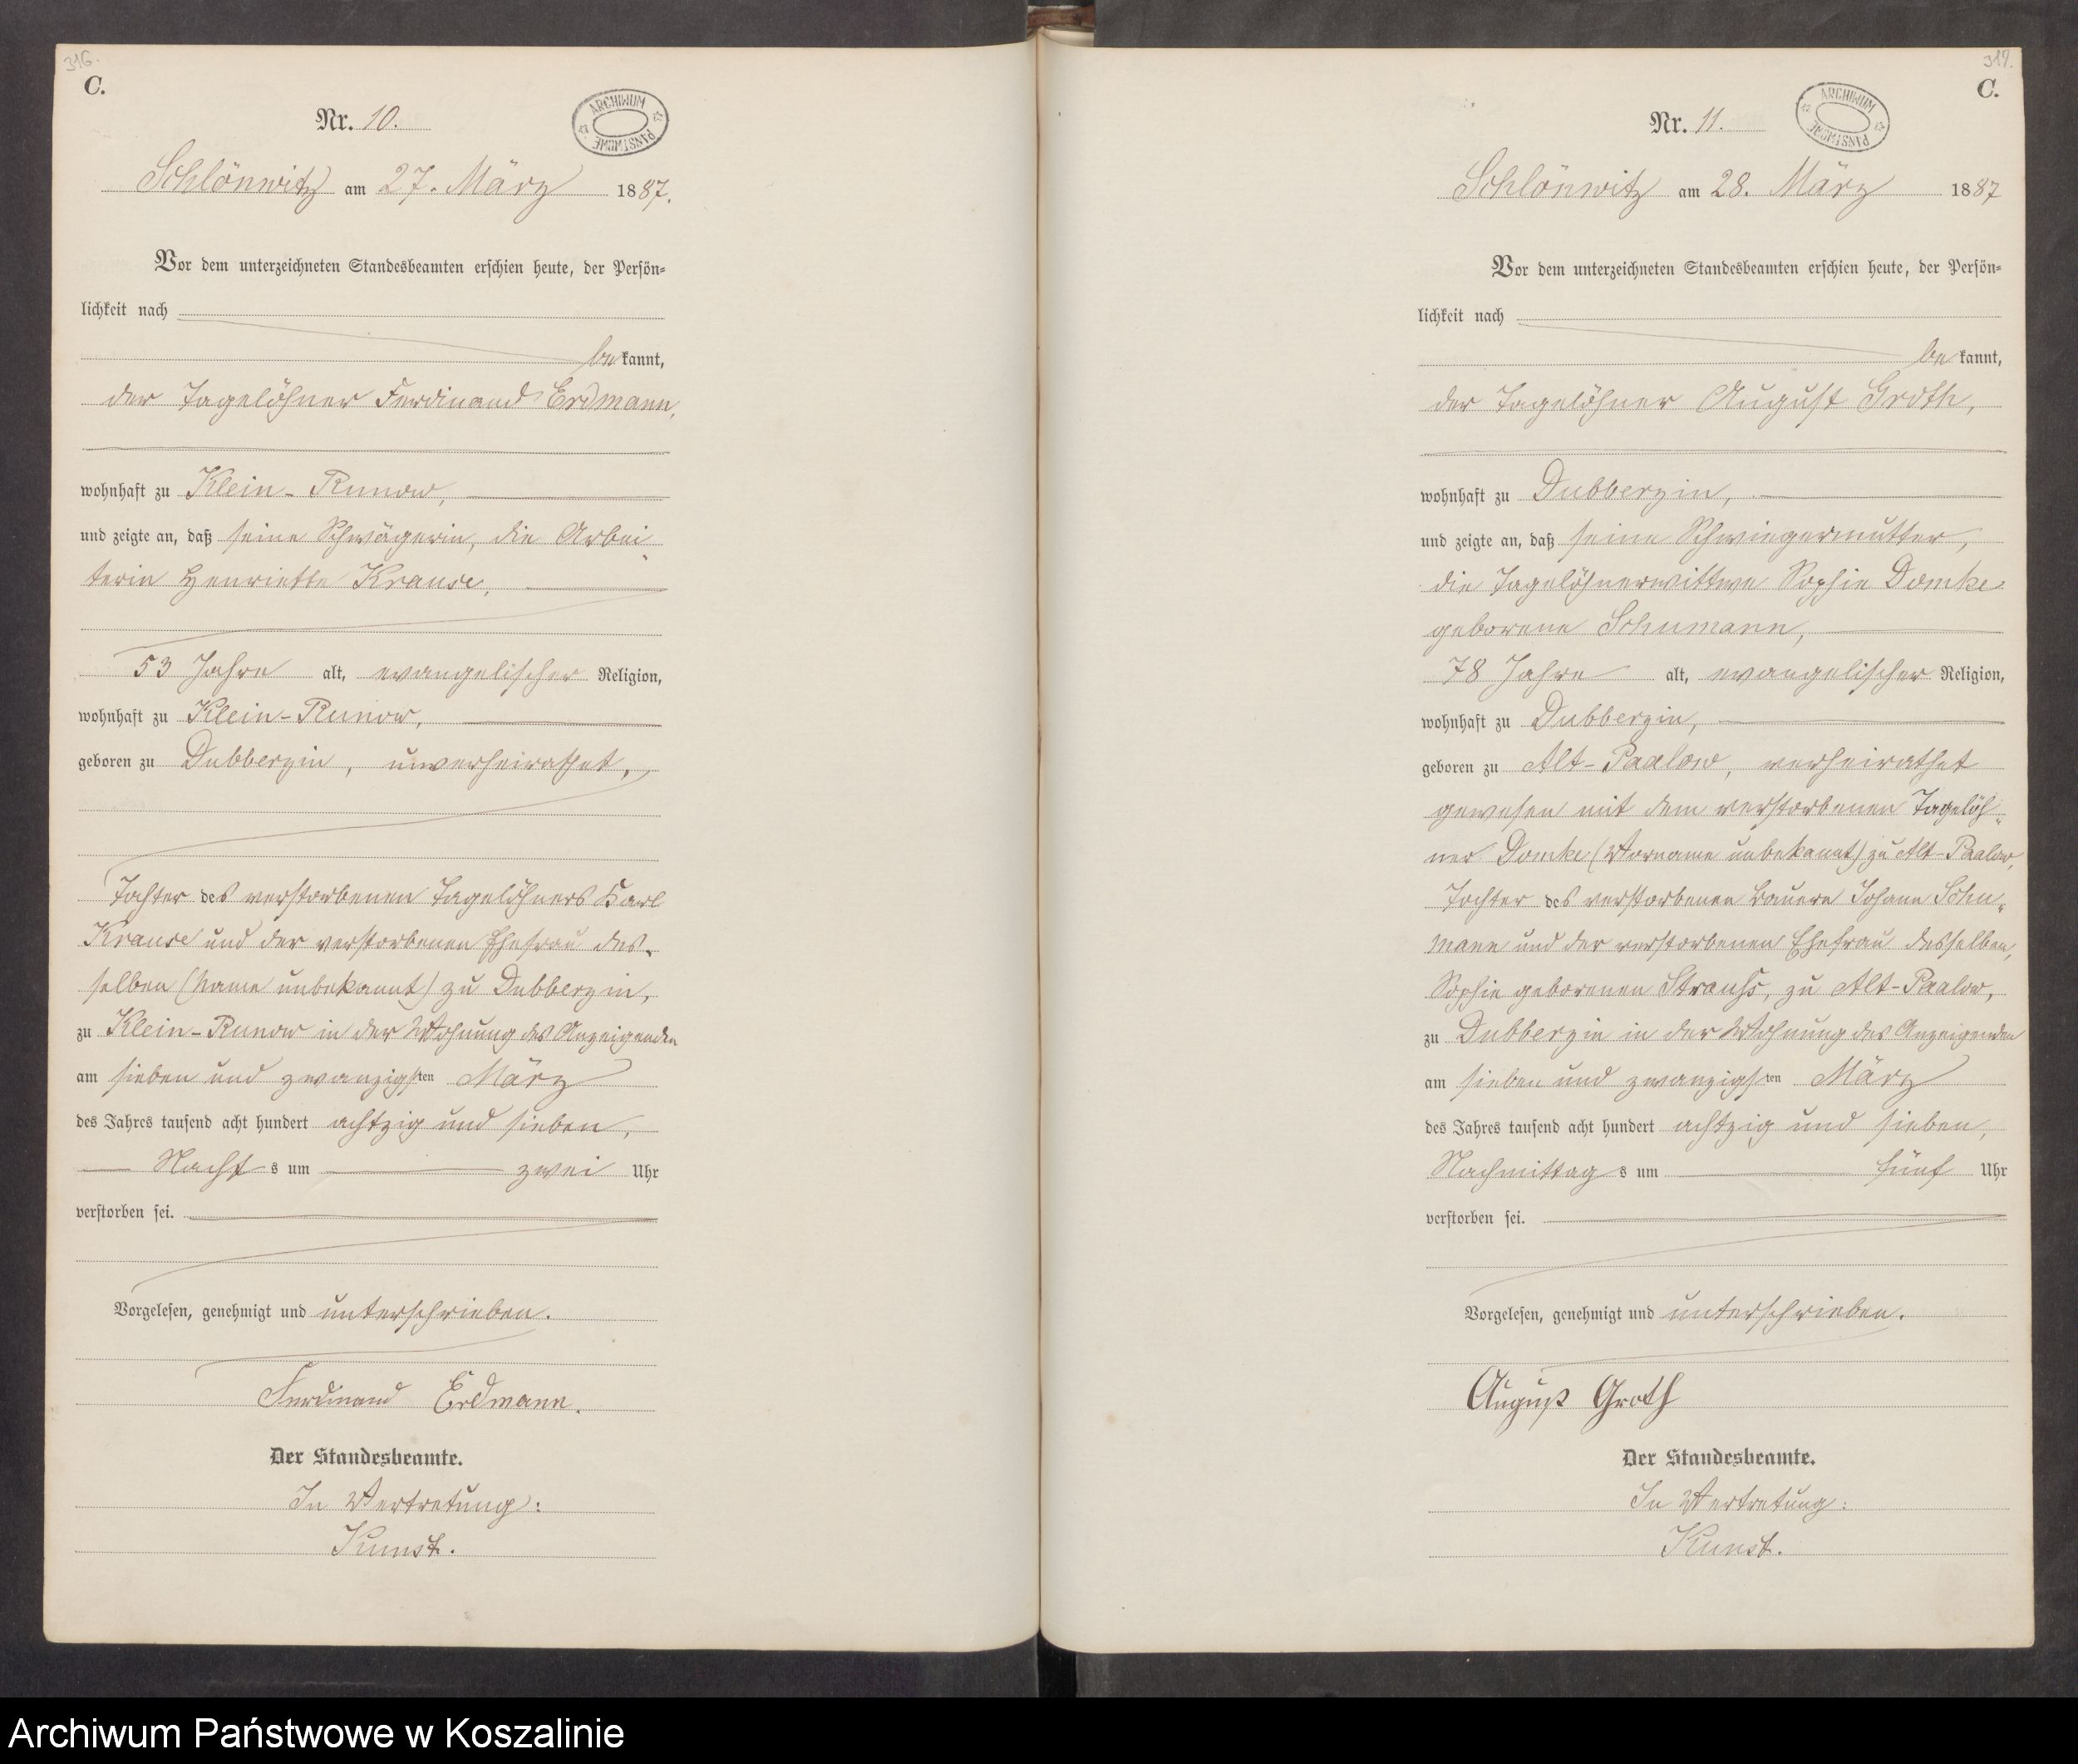 316.
C.
Nr. 10.
ARCHIWUM PAŃSTWOWE
Schlönwitz am 27. März 1887.
Vor dem unterzeichneten Standesbeamten erschien heute, der Persön-
lichkeit nach
bekannt,
der Tagelöhner Ferdinand Erdmann,
wohnhaft zu Klein-Runow,
und zeigte an, daß seine Schwägerin, die Arbei-
terin Henriette Krause,
53 Jahre alt, evangelischer Religion,
wohnhaft zu Klein-Runow,
geboren zu Dubberzin, unverheirathet,
Tochter des verstorbenen Tagelöhners Karl
Krause und der verstorbenen Ehefrau des-
selben (Name unbekannt) zu Dubberzin,
zu Klein-Runow in der Wohnung des Anzeigenden
am sieben und zwanzigsten März
des Jahres tausend acht hundert achtzig und sieben,
Nachts um zwei Uhr
verstorben sei.
Vorgelesen, genehmigt und unterschrieben.
Ferdinand Erdmann.
Der Standesbeamte.
In Vertretung:
Kunst.
317.
C.
Nr. 11.
ARCHIWUM PAŃSTWOWE
Schlönwitz am 28. März 1887
Vor dem unterzeichneten Standesbeamten erschien heute, der Persön-
lichkeit nach
bekannt,
der Tagelöhner August Groth,
wohnhaft zu Dubberzin,
und zeigte an, daß seine Schwiegermutter,
die Tagelöhnerwittwe Sophie Domke
geborene Schumann,
78 Jahre alt, evangelischer Religion,
wohnhaft zu Dubberzin,
geboren zu Alt-Paalow, verheirathet
gewesen mit dem verstorbenen Tagelöh-
ner Domke (Vorname unbekannt) zu Alt-Paalow,
Tochter des verstorbenen Bauern Johann Schu-
mann und der verstorbenen Ehefrau desselben,
Sophie geborenen Strauß, zu Alt-Paalow,
zu Dubberzin in der Wohnung des Anzeigenden
am sieben und zwanzigsten März
des Jahres tausend acht hundert achtzig und sieben,
Nachmittags um fünf Uhr
verstorben sei.
Vorgelesen, genehmigt und unterschrieben.
August Groth
Der Standesbeamte.
In Vertretung:
Kunst.
Archiwum Państwowe w Koszalinie